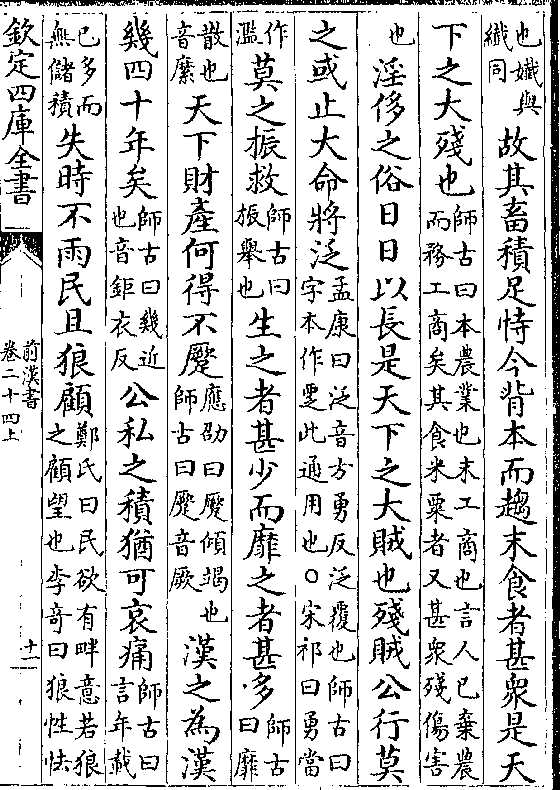 也孅與
纎同
故其畜積足恃今背本而趨末食者甚衆是天
下之大殘也
師古曰本農業也末工商也言人已棄農
而務工商矣其食米粟者又甚衆殘傷害
也
淫侈之俗日日以長是天下之大賊也殘賊公行莫
之或止大命將泛
孟康曰泛音方勇反泛覆也師古曰
字本作覂此通用也○宋祁曰勇當
作
濫
莫之振救
師古曰
振舉也
生之者甚少而靡之者甚多
師古
曰靡
散也
音縻
天下財產何得不蹷
應劭曰蹷傾竭也
師古曰蹷音厥
漢之為漢
幾四十年矣
師古曰幾近
也音鉅衣反
公私之積猶可哀痛
師古曰
言年載
已多而
無儲積
失時不雨民且狼顧
鄭氏曰民欲有畔意若狼
之顧望也李奇曰狼性怯
欽定四庫全書
前漢書
卷二十四上
十一